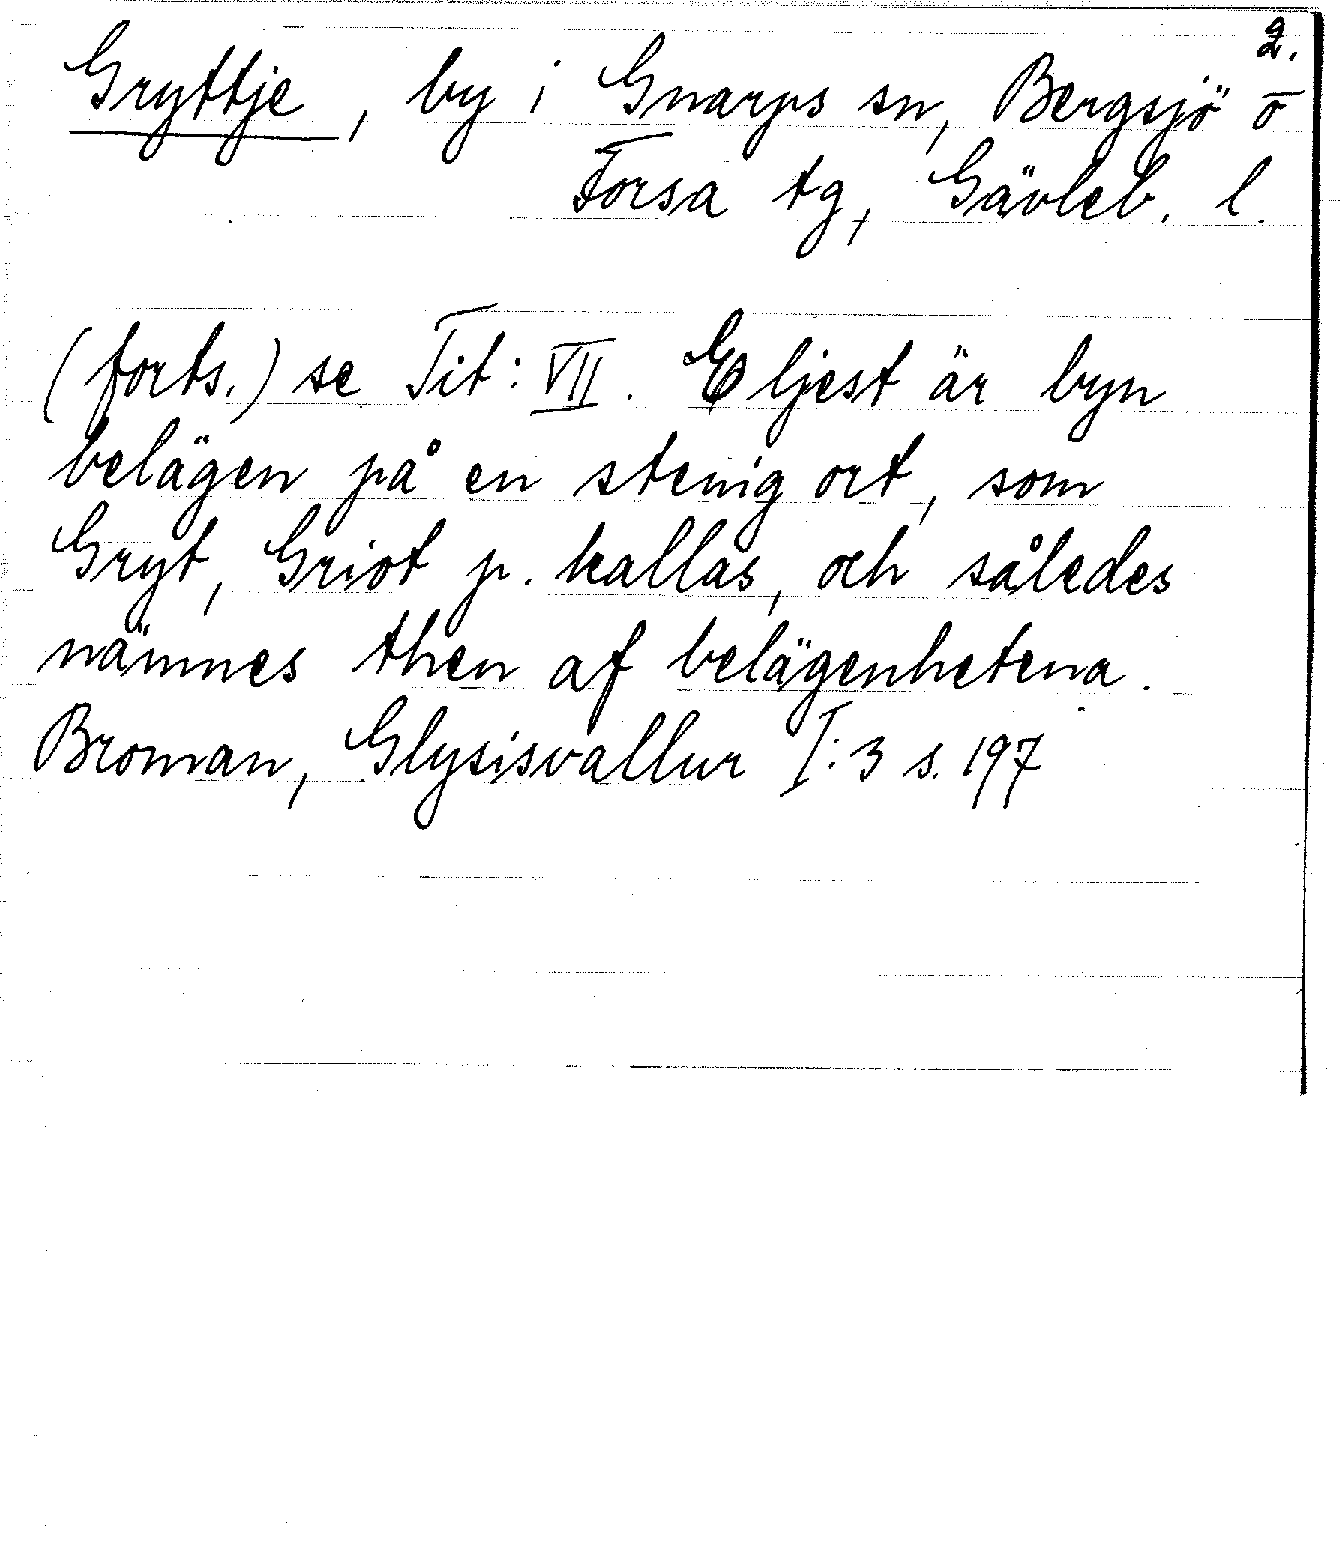 2.
Gryttje, by i Gnarps sn, Bergsjö o
Forsa tg, Gävleb. l.
(forts.) se Tit: VII. Eljest är byn
belägen på en stenig ort, som
Gryt, Griot p. kallas, och således
nämnes then af belägenhetena.
Broman, Glysisvallur I:3 s. 197